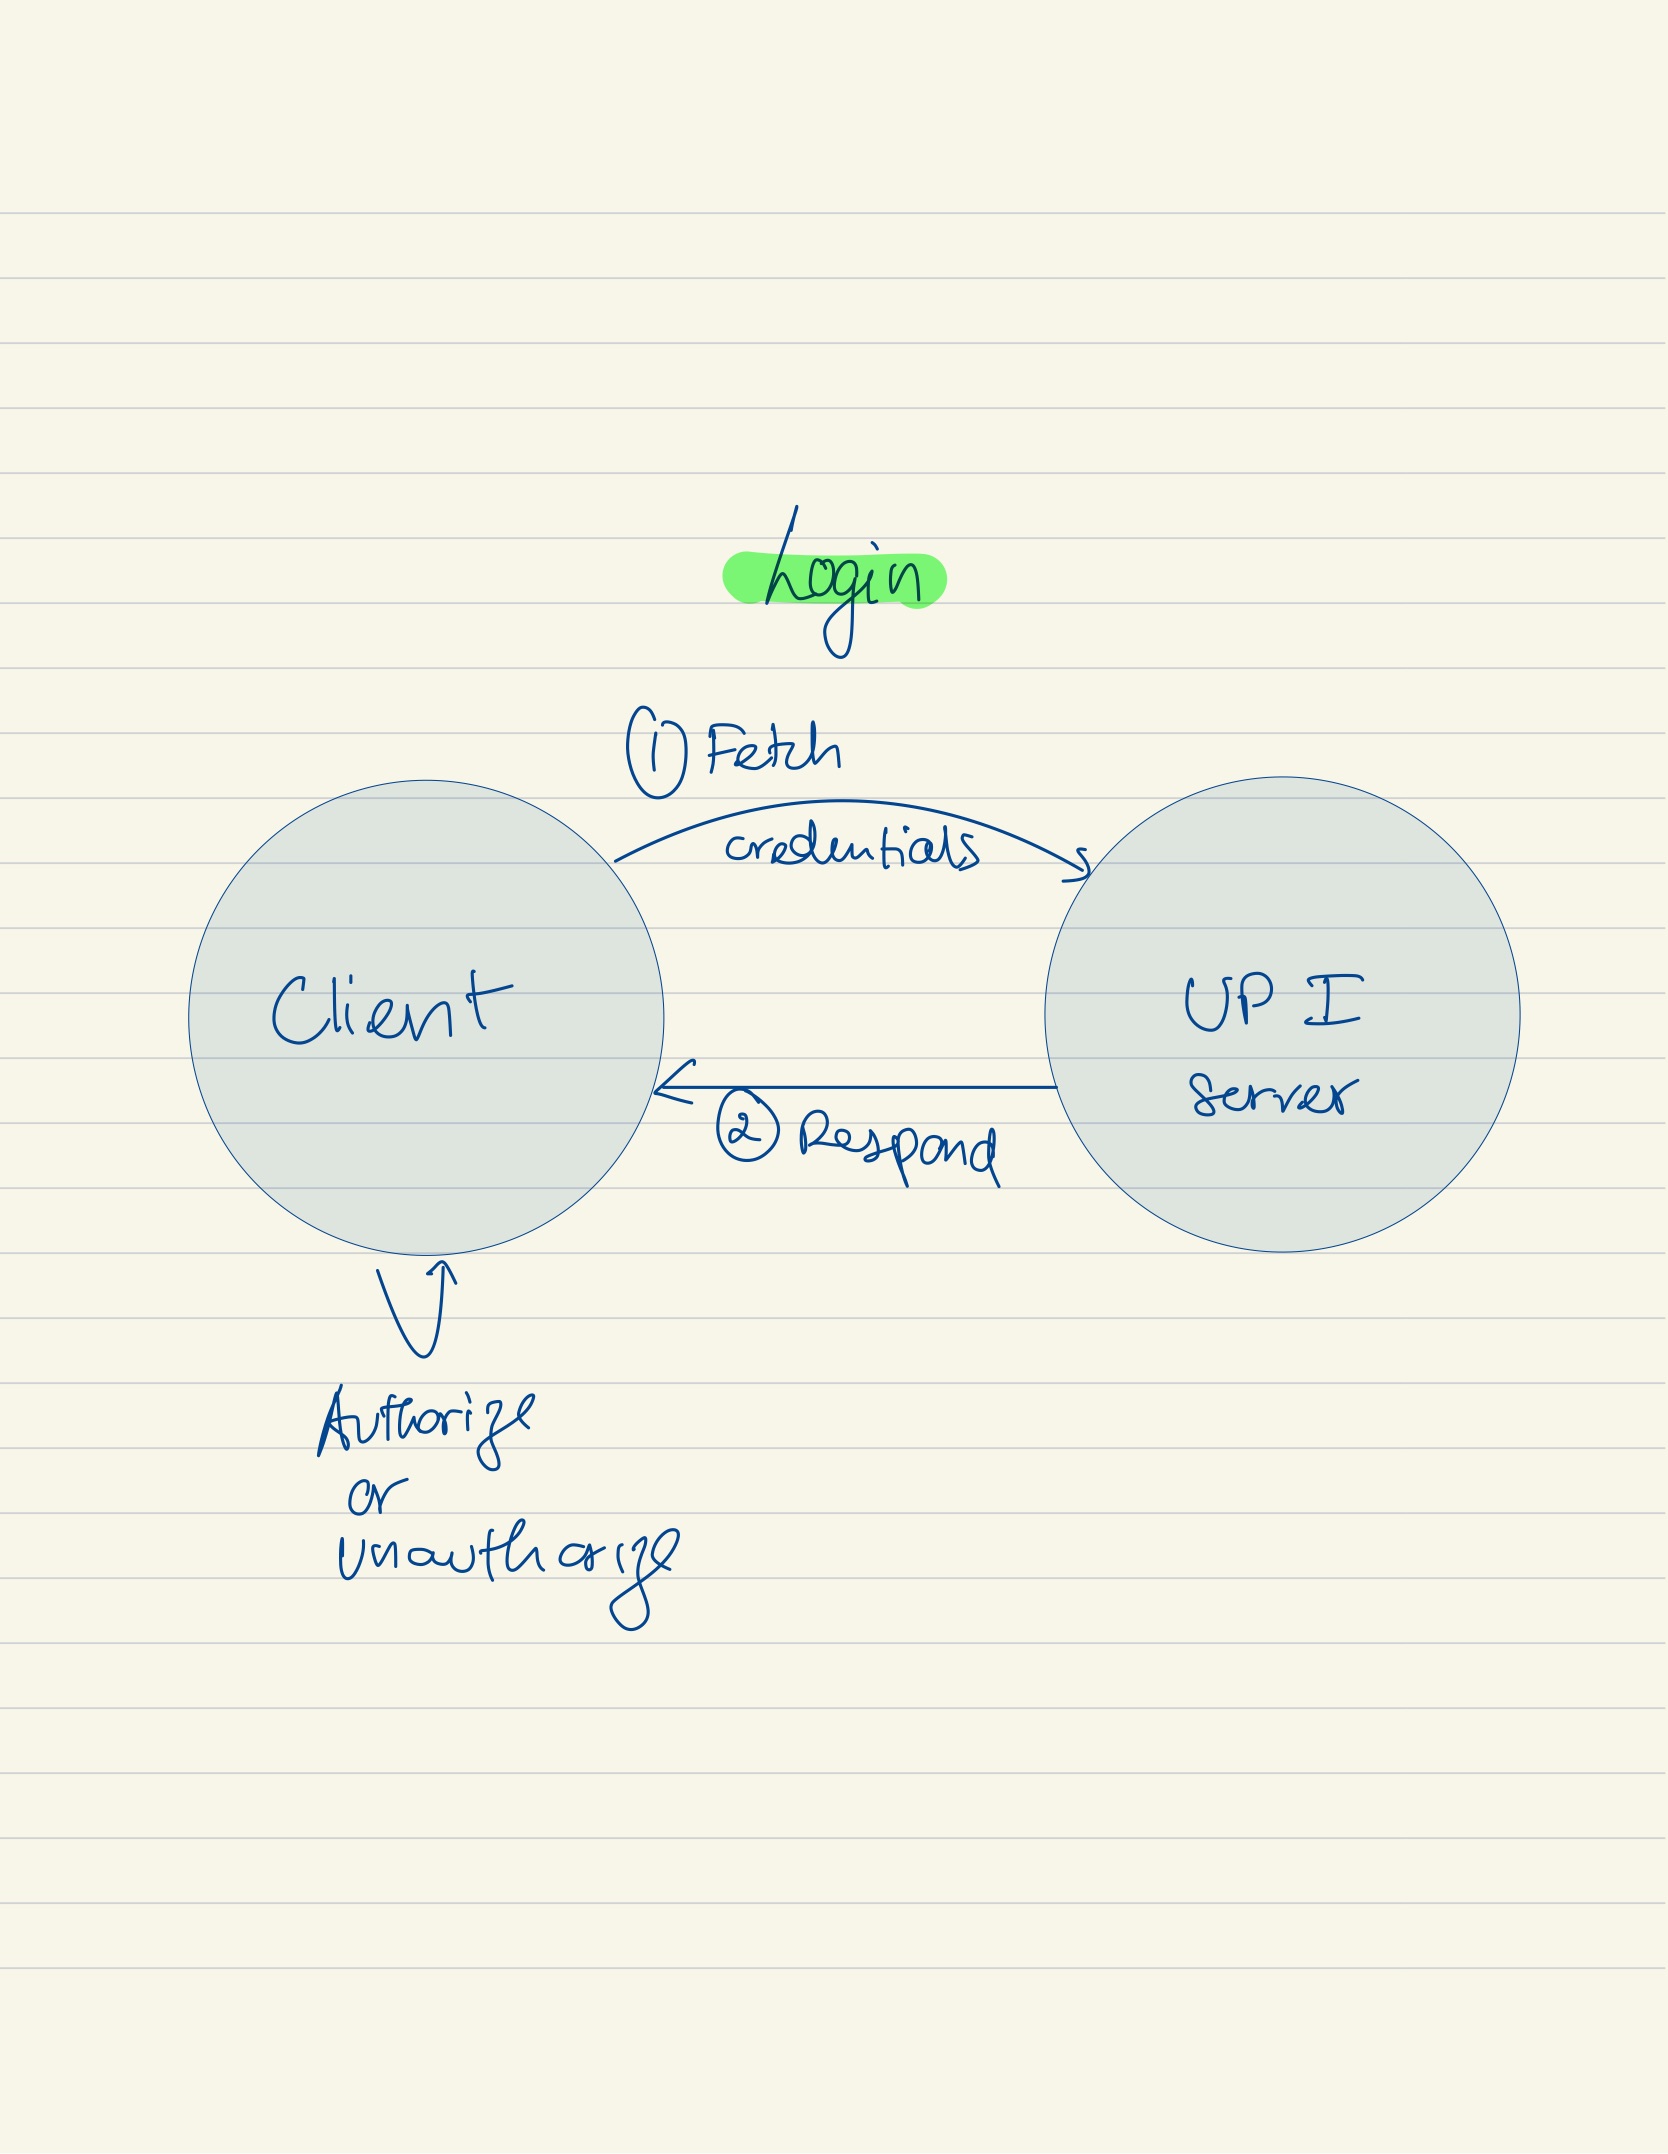 Login
① Fetch
credentials
Client
UPI
Server
② Respond
Authorize
or
unauthorize